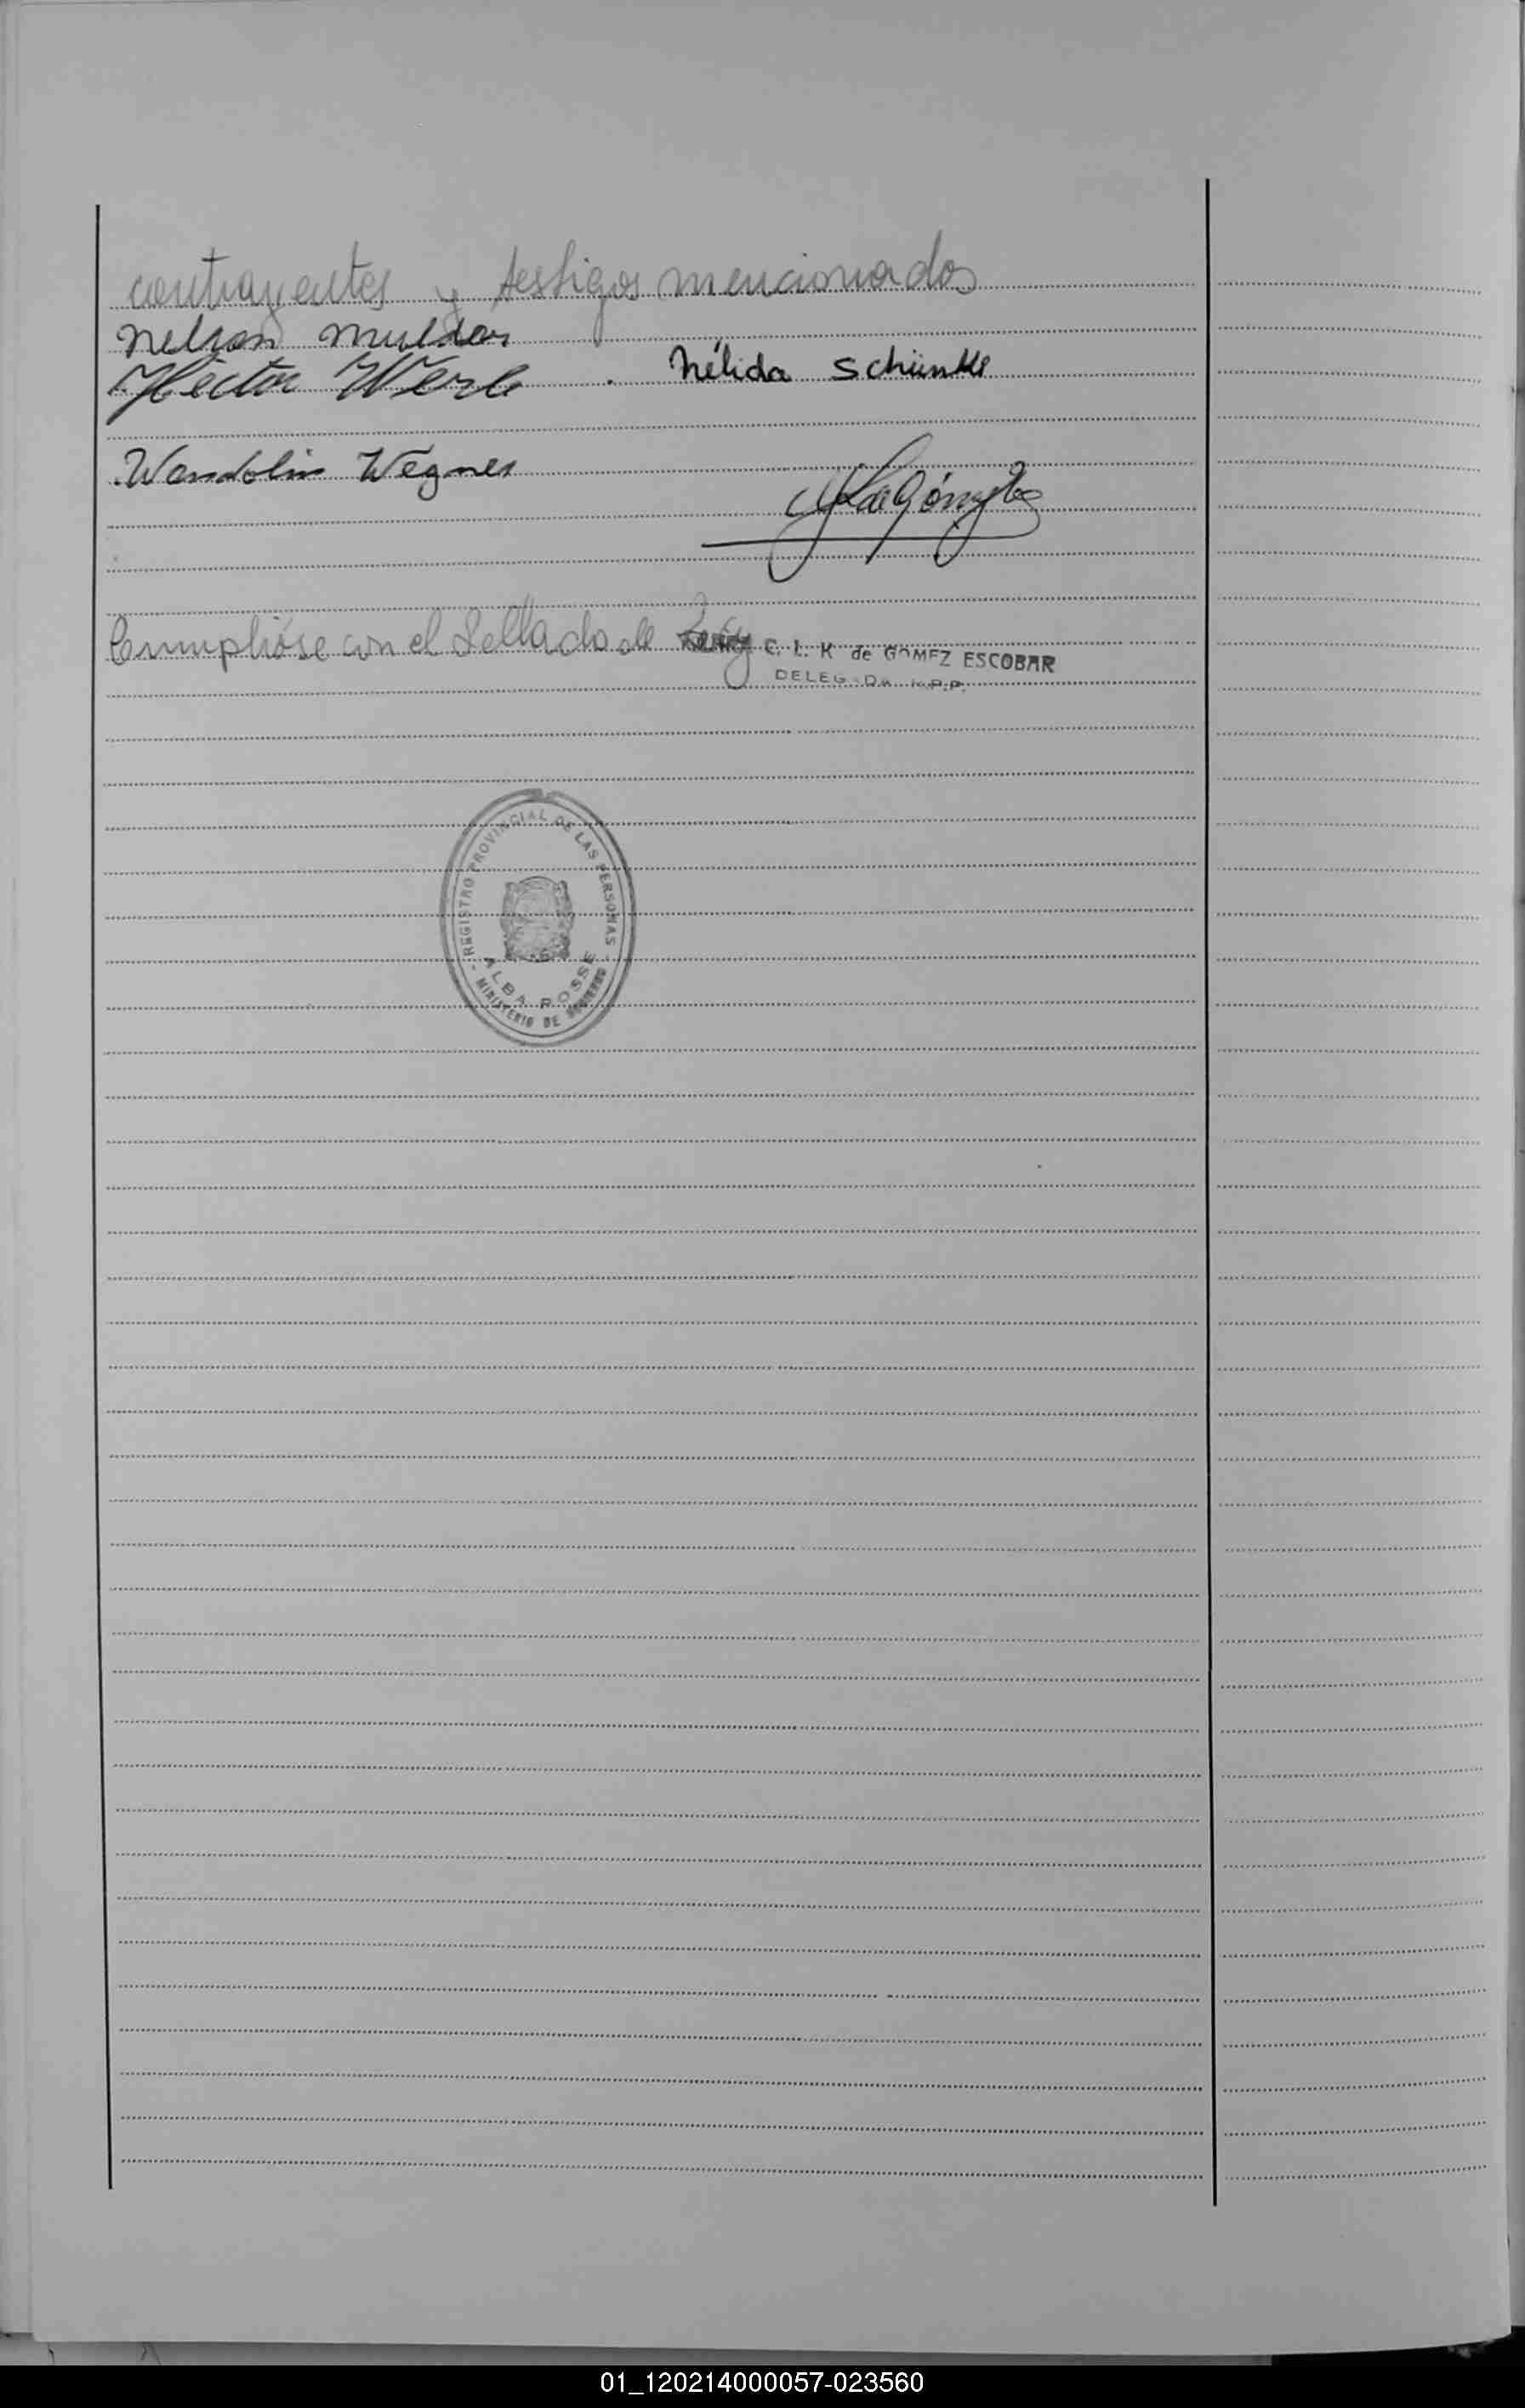 contrayentes y testigos mencionados
nelson muldor
Héctor Werle
Nélida Schünke
Wandolin Wegner
Cumplióse con el Sellado de Ley
C. I. K de GOMEZ ESCOBAR
DELEG DA R.P.P.
REGISTRO PROVINCIAL DE LAS PERSONAS
ALBA POSSE
MINISTERIO DE GOBIERNO
01_120214000057-023560